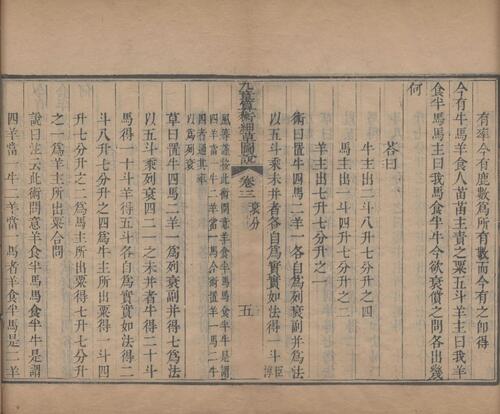 有率今有鹿數爲所有數而今之卽得
今有牛馬羊食人苗苗主責之粟五斗羊主曰我羊
食半馬馬主曰我馬食半牛今欲衰償之問各出幾
何
荅曰
牛主出二斗八升七分升之四
馬主出一斗四升七分升之二
羊主出七升七分升之一
術曰置牛四馬二羊一各自爲列衰副并爲法
以五斗乘未并者各自爲實實如法得一斗
臣淳
九章算術細草圖說
卷三
衰分
五
風等謹按此術問意羊食半馬馬食半牛是謂
四羊當一牛二羊當一馬今術置羊一馬二牛
四者通其率
以爲列衰
草曰置牛四馬二羊一爲列衰副并得七爲法
以五斗乘列衰四二一之未并者牛得二十斗
馬得一十斗羊得五斗各自爲實實如法得二
斗八升七分升之四爲牛主所出粟得一斗四
升七分升之二爲馬主所出粟得七升七分升
之一爲羊主所出粟合問
說曰注云此術問意羊食半馬馬食半牛是謂
四羊當一牛二羊當一馬者羊食半馬是二羊